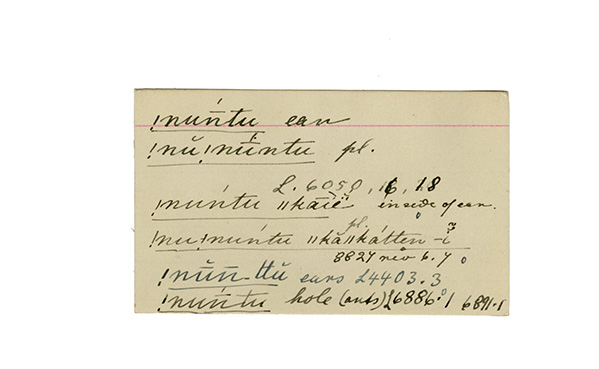 !nuntu ear
!nŭ!nŭntu pl.
L. 6050, 16, 18
!nuntu ǁkāïë inside of ear.
pl.
!nu!nuntu ǁkăǁkátten-i
8827 rev 6.7
!nŭn-ttŭ ears L4403.3
!nuntu hole (ants) L6886.1 6891.1